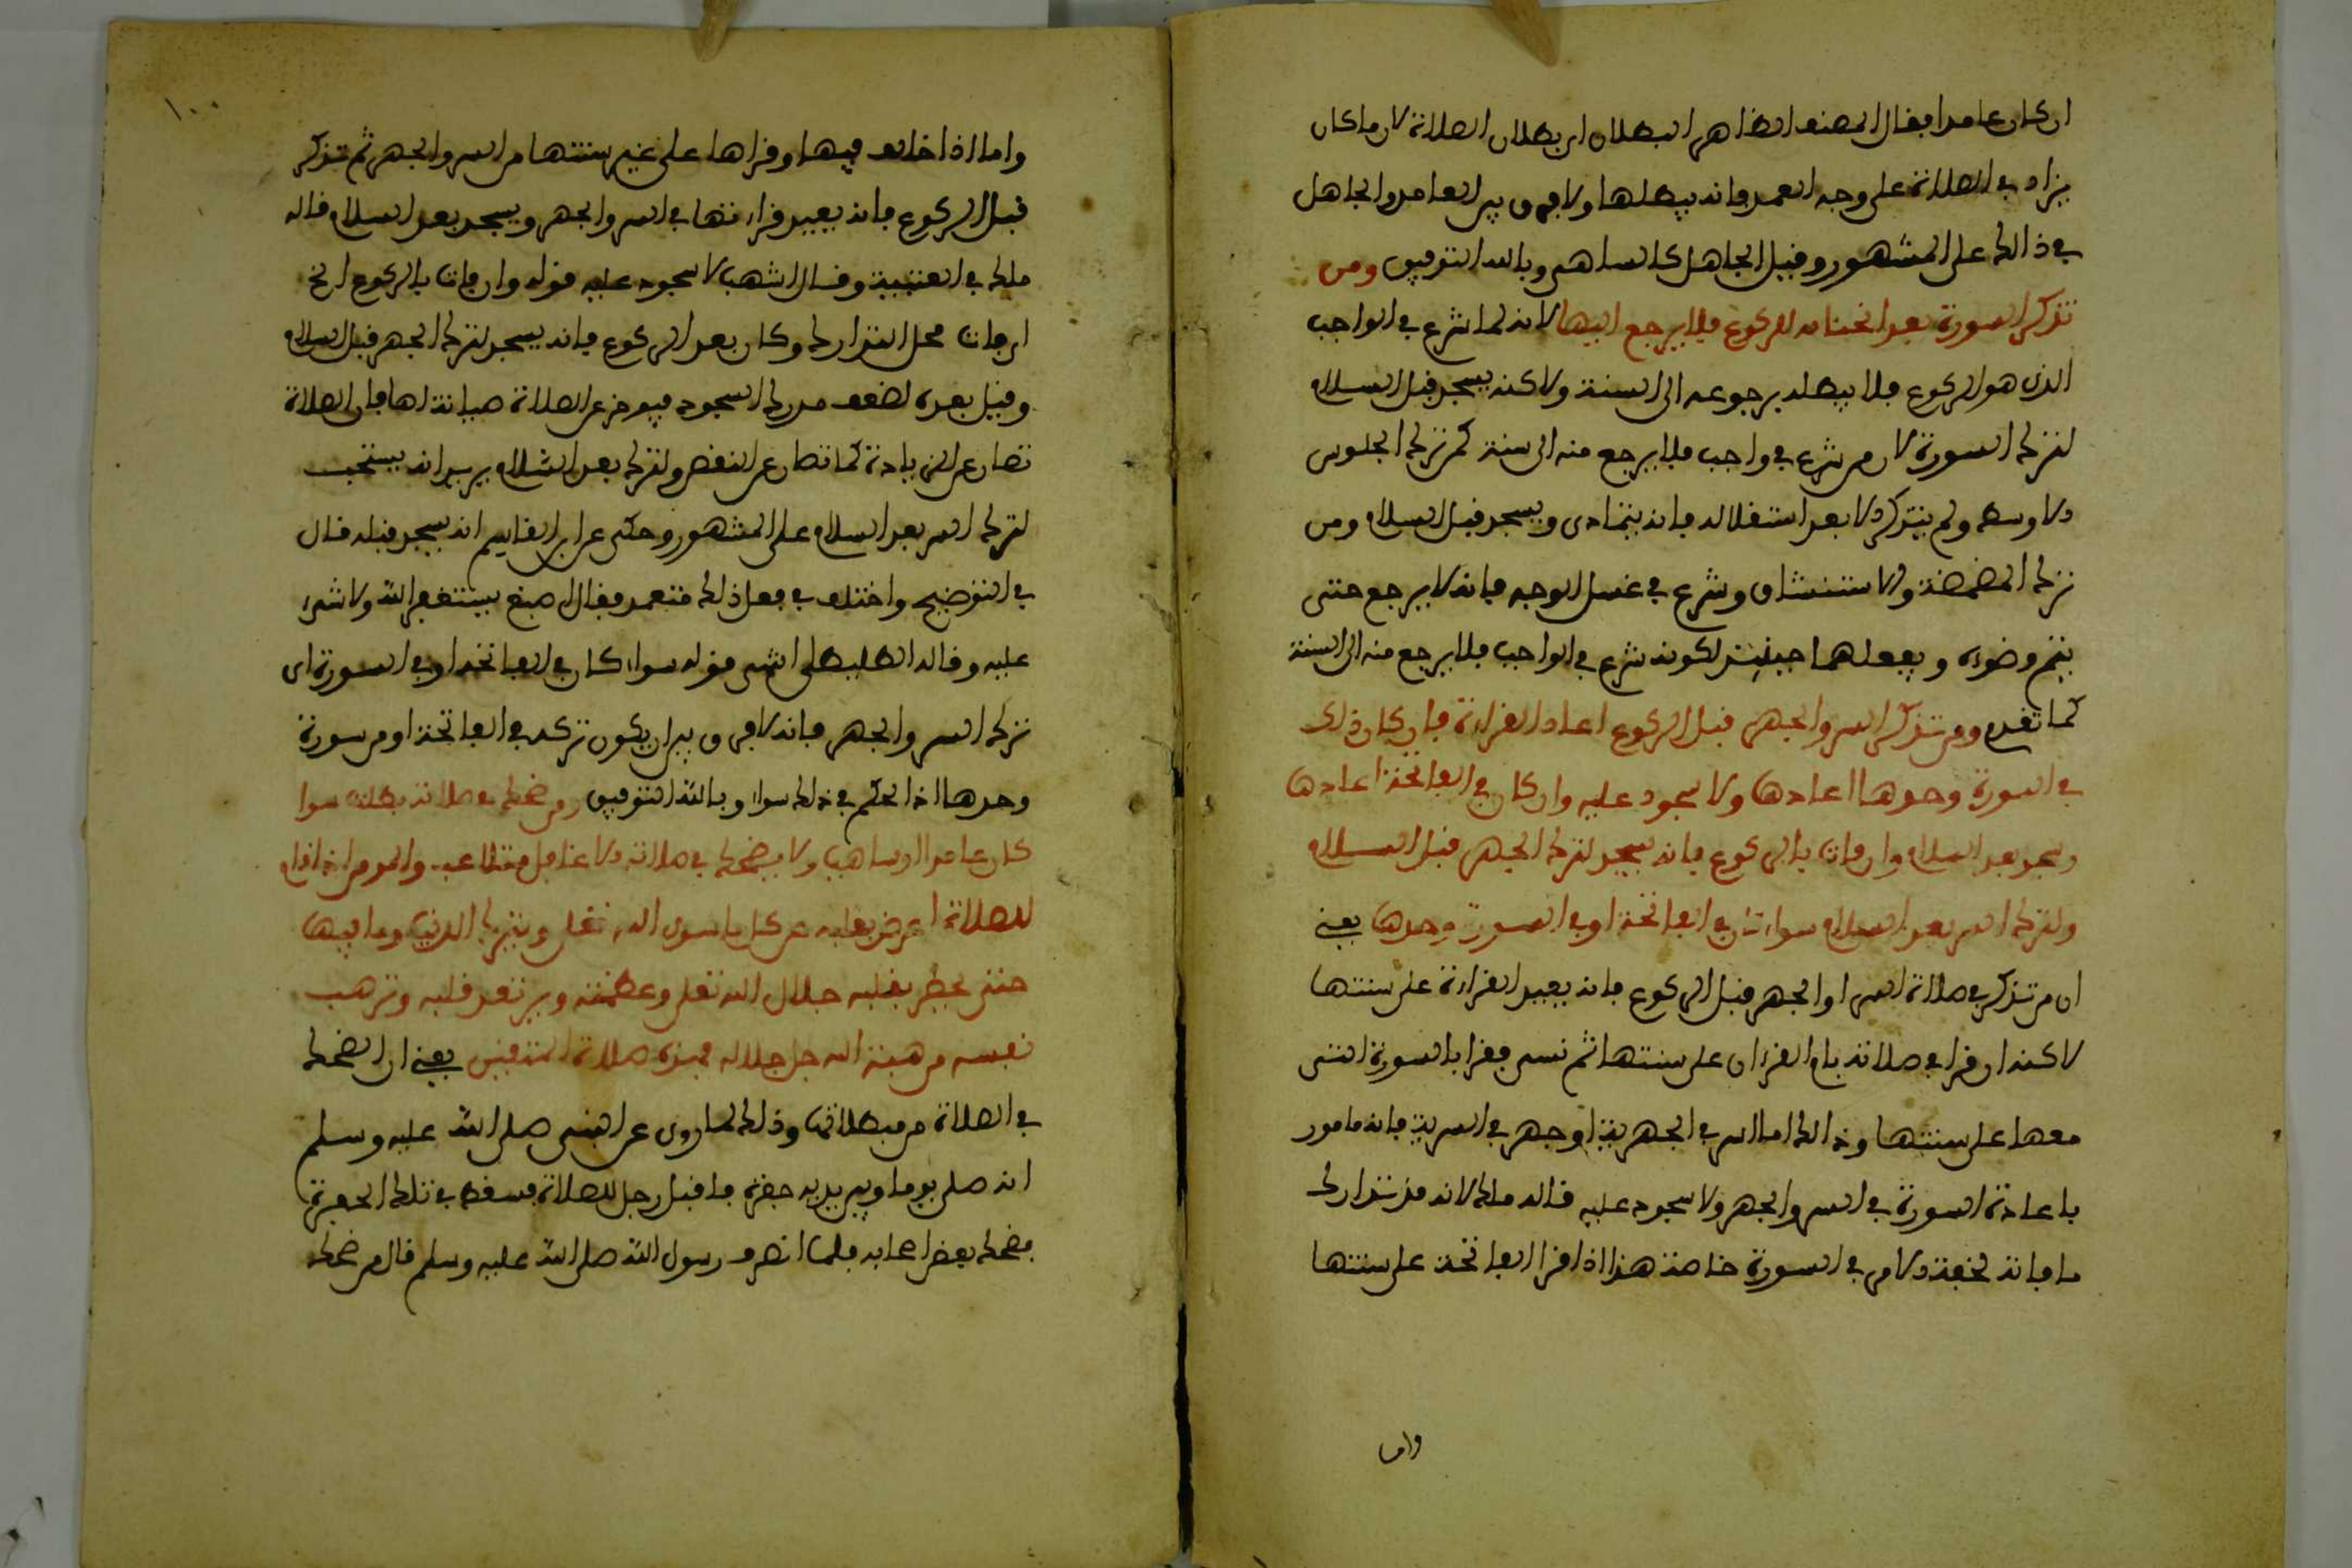 ان كان عامدا فقال المصنف الظاهر البطلان اى بطلان الصلاة لان ما كان
يزاد في الصلاة على وجه العمد فانه يبطلها ولا فرق بين العامد والجاهل
في ذالك على المشهور وقيل الجاهل كالساهى وبالله التوفيق ومن
تذكر السورة بعد انحنائه للركوع فلا يرجع اليها لانه لما شرع في الواجب
الذى هو الركوع فلا يبطله برجوعه الى السنة ولاكنه يسجد قبل السلام
لترك السورة لان من شرع في واجب فلا يرجع منه الى سنة كمن ترك الجلوس
الاوسط ولم يتذكر الا بعد استقلاله فانه يتمادى ويسجد قبل السلام ومن
ترك المضمضة والاستنشاق وشرع في غسل الوجه فانه لا يرجع حتى
يتم وضوءه ويفعلهما حينئذ لكونه شرع في الواجب فلا يرجع منه الى السنة
كما تقدم ومن تذكر السر والجهر قبل الركوع اعاد القراءة فان كان ذلك
في السورة وحدها اعادها ولا سجود عليه وان كان في الفاتحة اعادها
وسجد بعد السلام وان فات بالركوع فانه يسجد لترك الجهر قبل السلام
ولترك السر بعد السلام سواء كان في الفاتحة او في السورة وحدها يعني
ان من تذكر في صلاته السر او الجهر قبل الركوع فانه يعيد القراءة على سنتها
لاكنه ان قرا في صلاته بام القرءان على سنتها ثم نسى فقرا بالسورة التى
معها على سنتها وذالك اما السر في الجهرية او جهر في السرية فانه مامور
باعادة السورة في السر والجهر ولا سجود عليه قاله مالك لانه قد تدارك
ما فاته لخفة الامر في السورة خاصة هذا اذا قرا الفاتحة على سنتها
واما
١٠٠
واما اذا خالف فيها وقراها على غير سنتها من السر والجهر ثم تذكر
قبل الركوع فانه يعيد قراءتها في السر والجهر ويسجد بعد السلام قاله
ملك في العتبية وقال اشهب لا سجود عليه قوله وان فات بالركوع الخ
اى فات محل التدارك وكان بعد الركوع فانه يسجد لترك الجهر قبل السلام
وقيل بعده لضعف مدرك السجود فيوخر عن الصلاة صيانة لها فان الصلاة
تصان عن الزيادة كما تصان عن النقص ولترك بعد السلام يريد انه يستحب
لترك السر بعد السلام على المشهور وحكى عن ابن القاسم انه يسجد قبله قال
في التوضيح واختلف في فعل ذلك متعمد فقال اصبغ يستغفر الله ولا شىء
عليه وقاله الطليطلى انتهى قوله سواء كان في الفاتحة او في السورة اى
ترك السر والجهر فانه لا فرق بين ان يكون تركه في الفاتحة او من سورة
وحدها اذ الحكم في ذلك سواء وبالله التوفيق ومن ضحك في صلاته بطلت سوا
كان عامدا او ساهيا ولا يضحك في صلاته الا غافل متلاعب والمومن اذا قام
للصلاة اعرض بقلبه عن كل ما سوى الله تعلى ويترك الدنيا وما فيها
حتى يحضر بقلبه جلال الله تعلى وعظمته ويرتعد قلبه وترهب
نفسه من هيبة الله جل جلاله فهذه صلاة المتقين يعني ان الضحك
في الصلاة من مبطلاتها وذلك لما روى عن النبى صلى الله عليه وسلم
انه صلى يوما وبين يديه حفرة فاقبل رجل للصلاة فسقط في تلك الحفرة
فضحك بعض اصحابه فلما انصرف رسول الله صلى الله عليه وسلم قال من ضحك